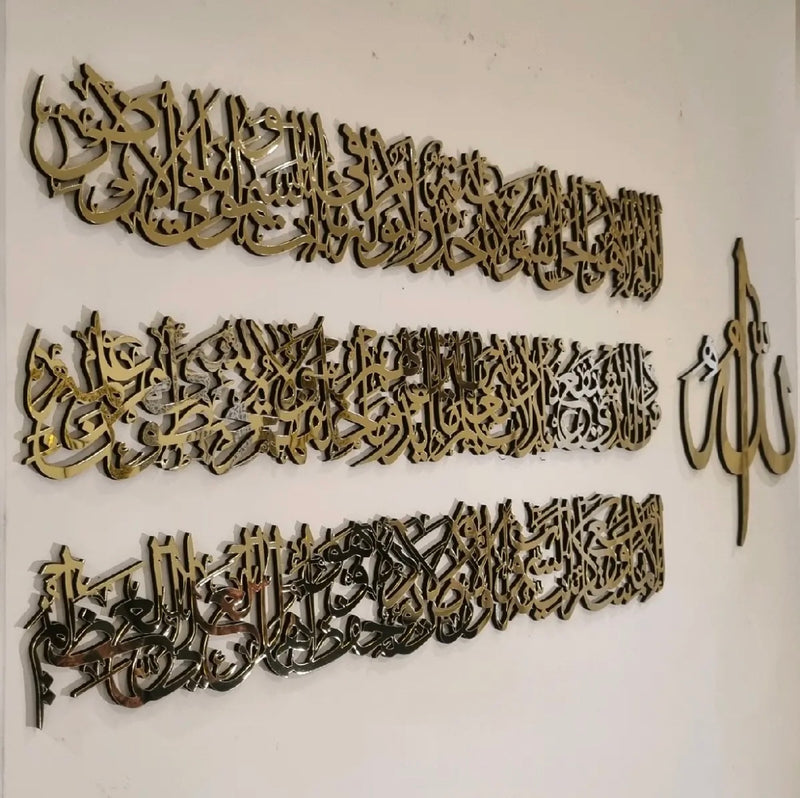 الله
الله لا إله إلا هو الحي القيوم لا تأخذه سنة ولا نوم له ما في السموات وما في الأرض من
ذا الذي يشفع عنده إلا بإذنه يعلم ما بين أيديهم وما خلفهم ولا يحيطون بشيء من علمه
إلا بما شاء وسع كرسيه السموات والأرض ولا يؤده حفظهما وهو العلي العظيم